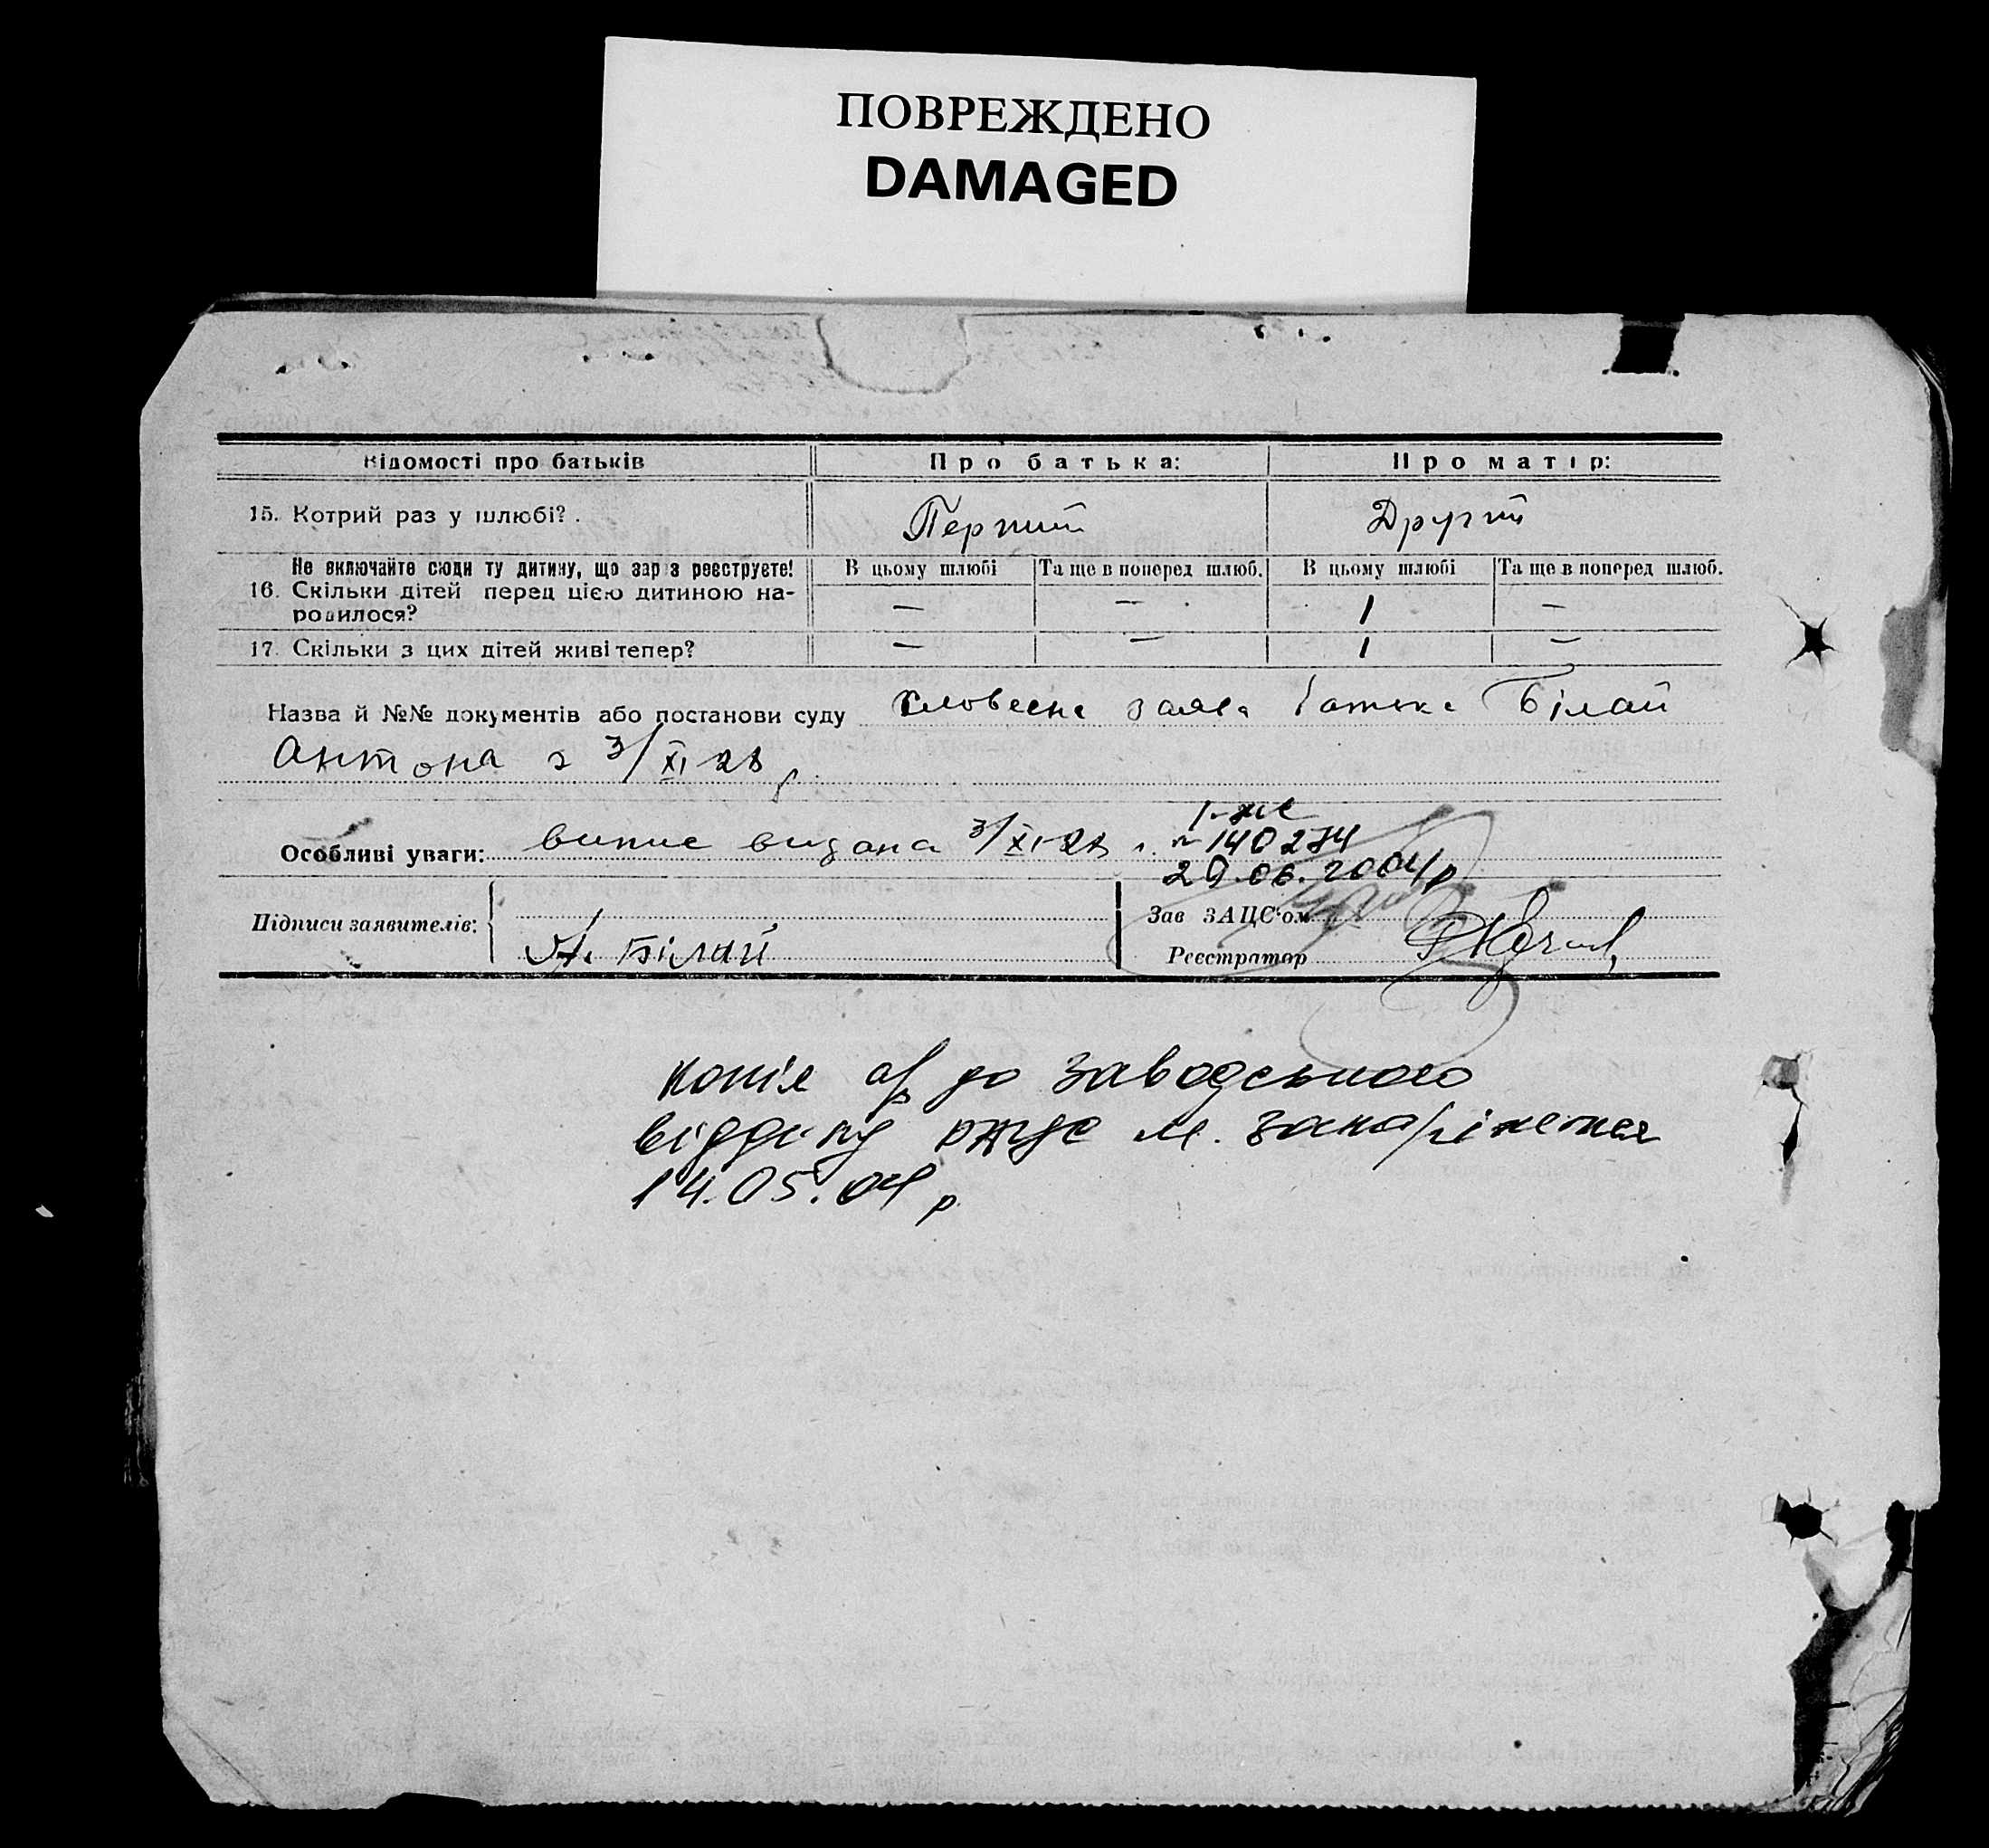 ПОВРЕЖДЕНО
DAMAGED
Відомості про батьків Про батька: Про матір:
15. Котрий раз у шлюбі? Перший Другий
Не включайте сюди ту дитину, що зараз реєструєте! В цьому шлюбі Та ще в поперед шлюб. В цьому шлюбі Та ще в поперед шлюб.
16. Скільки дітей перед цією дитиною на-
родилося? — — 1 —
17. Скільки з цих дітей живі тепер? — — 1 —
Назва й №№ документів або постанови суду Словесна заява батька Білай
Антона з 3/XI-28
І-жс
Особливі уваги: випис видана 3/XI-28 г. № 140274
29.06.2004р
Підписи заявителів: А. Білай
Зав ЗАЦС'ом
Реєстратор
копія а/з до Заводського
відділу РАЦС м. Запоріжжя
14.05.04 р